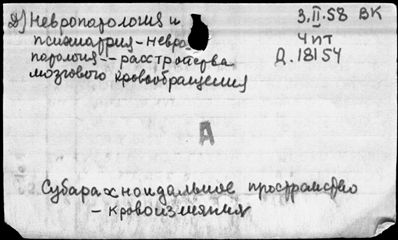 2) Невропатология и
психиатрия - невро
патология -- расстройства
мозгового кровообращения
3.II.58 ВК
4 пт
Д. 18154
А
Субарахноидальное пространство
- кровоизлияния